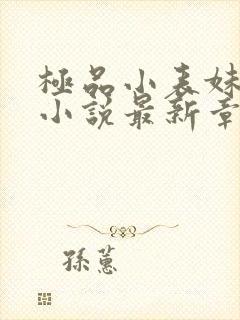 極品小表妹
小說最新章
孫蕙